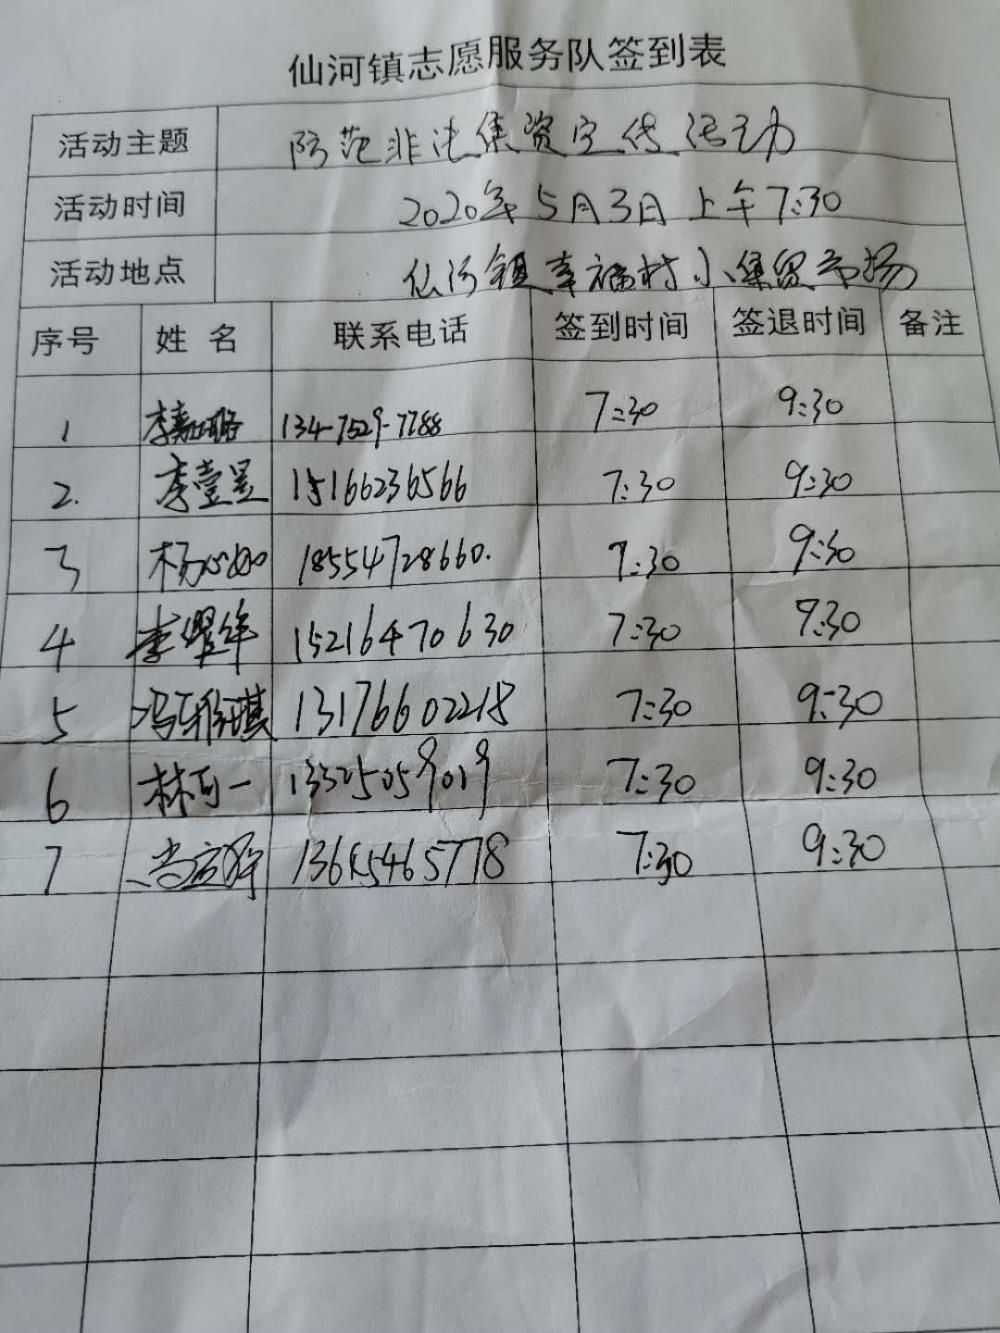 仙河镇志愿服务队签到表
活动主题 防范非法集资宣传活动
活动时间 2020年5月3日上午7:30
活动地点 仙河镇幸福村小集贸市场
序号 姓名 联系电话 签到时间 签退时间 备注
1 李嘉璐 134-7529-7788 7:30 9:30
2. 李壹昱 15166236566 7:30 9:30
3 杨心如 18554728660. 7:30 9:30
4 李 15216470630 7:30 9:30
5 冯雅琪 13176602218 7:30 9:30
6 林可一 13325059019 7:30 9:30
7 尚 13615465778 7:30 9:30